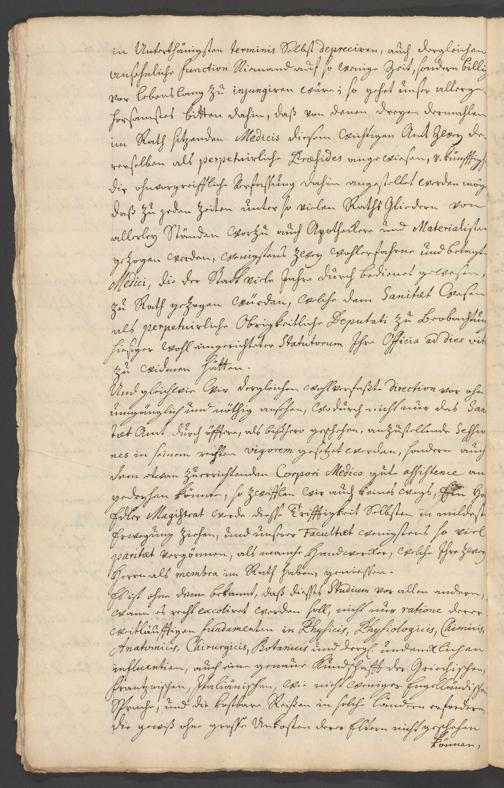 in Unterthänigsten terminis Selbst depreciren, auch dergleichen
ansehnliche function Niemand auf so wenige Zeit, sondern billig
vor lebenslang zu injungiren wäre; so gehet unser allerge-
horsamstes bitten dahin, daß von denen dreyen dermahlen
im Rath sitzenden Medicis diesem wichtigen Amt zwey de-
renselben als perpetuirliche Præsides angewiesen, v. künfftig
die ohnvorgreiffliche Verfassung dahin angestellet werden mög
daß zu jeden Zeiten unter so vielen Raths Gliedern von
allerley Ständen worzu auch Apothekere und Materialisten
gezogen werden, wenigstens zwey wohlerfahrne und betagte
Medici, die der Stadt viele Jahre durch bedienet gewesen,
zu Rath gezogen würden, welche dem Sanitæt Wesen
als perpetuirliche Obrigkeitliche Deputati zu Beobachtung
hiesiger wohl eingerichteter Statutorum Ihre Officia ad dies vit
zu widmen hätten.
Und gleichwie wir dergleichen wohlverfaßte Direction vor ohn
umgänglich und nöthig ansehen, wodurch nicht nur das Sani
tæt Amt durch öfftere, als bißhero geschehen, anzustellende Sessio
nes in seinem rechten vigorem gesetzet werden, sondern auch
dem etwan zuerrichtenden Corpori Medico gut assistence an
gedeyhen könnte, so zweifflen wir auch keines wegs, Ein Ho
Edler Magistrat werde diesse Trifftigkeit Selbsten in mildeste
Erwegung ziehen, und unserer Facultæt wenigstens so viel
paritæt vergönnen, als manche Handwercker, welche Ihre zwey
Herrn als membra im Rath haben, geniessen.
Es ist ohne dem bekannt, daß dieses Studium vor allen andern,
wann es recht excoliret werden soll, nicht nur ratione derer
weitläufftigen fundamenten in Physicis, Physiologicis, Chimicis,
Anatomicis, Chirurgicis, Botanicis und dergl. unendlichen
influentien, auch eine genaue Kündschafft der Griechischen,
Frantzösischen, Italiänischen, wie nicht weniger Engelländischen
Sprache, und die kostbare Reißen in solche länder erfordern
die gewiß ohne grosse Unkosten derer Eltern nicht geschehen
können,